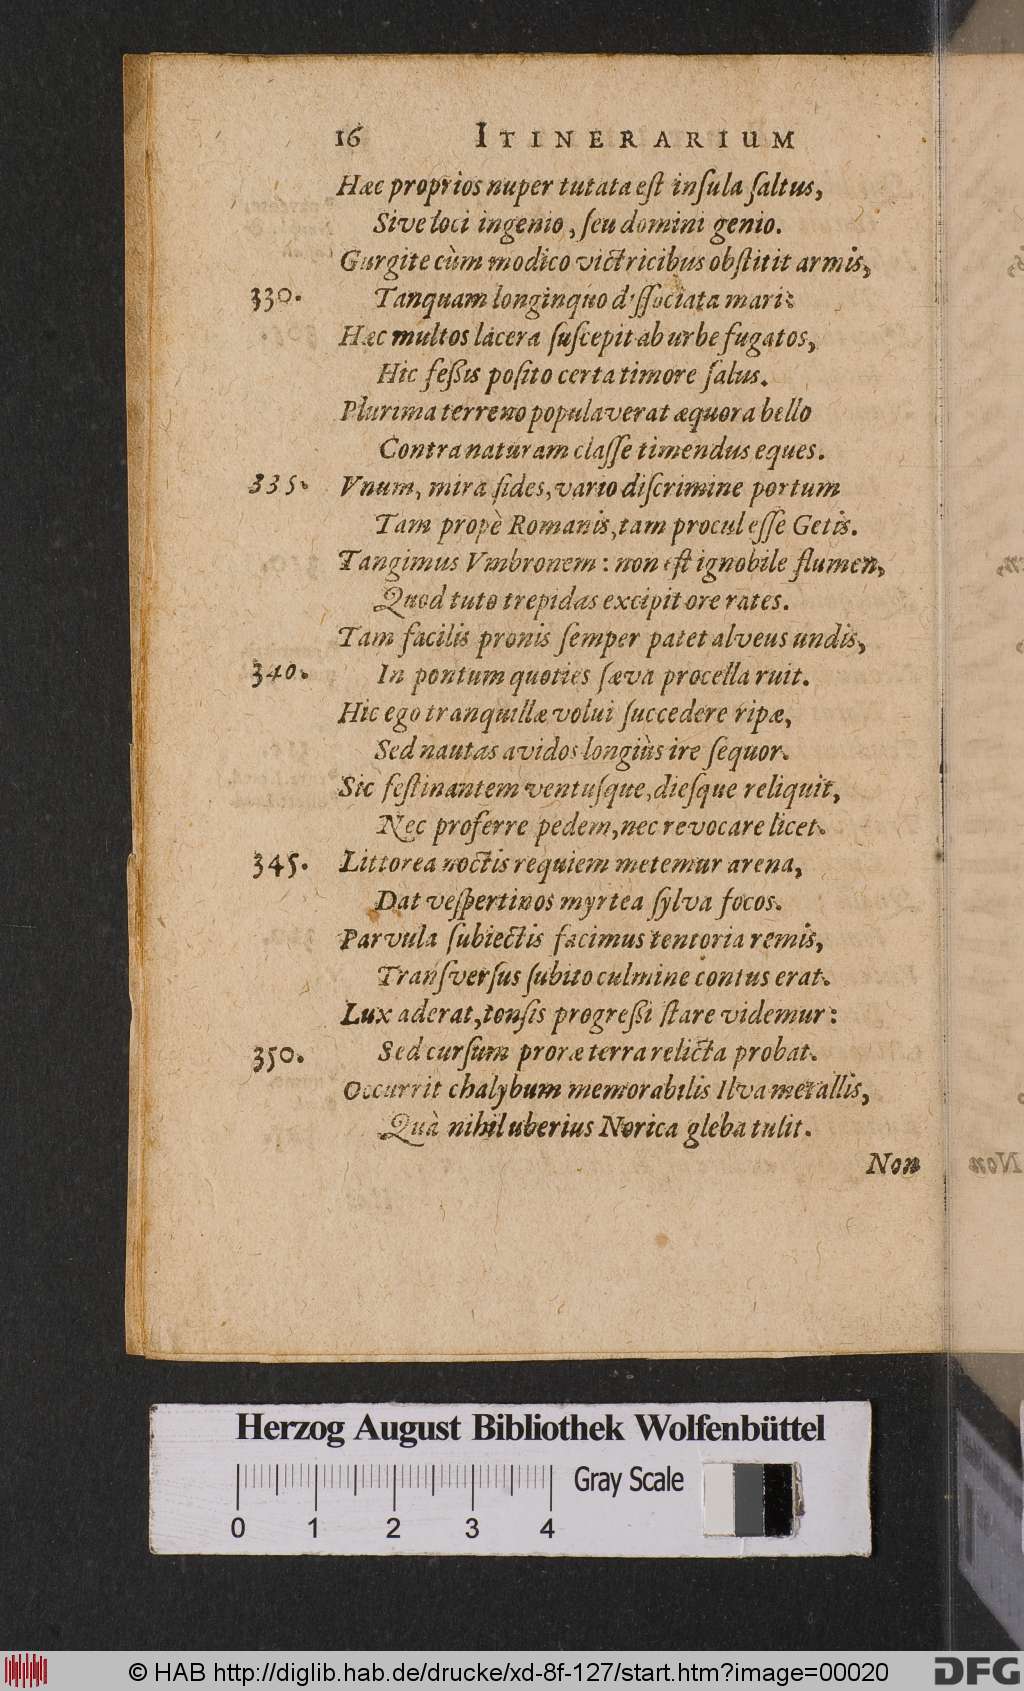 16 ITINERARIUM
Hæc proprios nuper tutata est insula saltus,
Sive loci ingenio, seu domini genio.
Gurgite cùm modico victricibus obstitit armis,
330. Tanquam longinquo dissociata mari:
Hæc multos lacera suscepit ab urbe fugatos,
Hic fessis posito certa timore salus.
Plurima terreno populaverat æquora bello
Contra naturam classe timendus eques.
335. Vnum, mira fides, vario discrimine portum
Tam propè Romanis, tam procul esse Getis.
Tangimus Vmbronem: non est ignobile flumen,
Quod tuto trepidas excipit ore rates.
Tam facilis pronis semper patet alveus undis,
340. In pontum quoties sæva procella ruit.
Hic ego tranquillæ volui succedere ripæ,
Sed nautas avidos longiùs ire sequor.
Sic festinantem ventusque, diesque reliquit,
Nec proferre pedem, nec revocare licet.
345. Littorea noctis requiem metemur arena,
Dat vespertinos myrtea sylva focos.
Parvula subiectis facimus tentoria remis,
Transversus subito culmine contus erat.
Lux aderat, tonsis progressi stare videmur:
350. Sed cursum proræ terra relicta probat.
Occurrit chalybum memorabilis Ilva metallis,
Quà nihil uberius Norica gleba tulit.
Non
Herzog August Bibliothek Wolfenbüttel
Gray Scale
0 1 2 3 4
© HAB http://diglib.hab.de/drucke/xd-8f-127/start.htm?image=00020
DFG